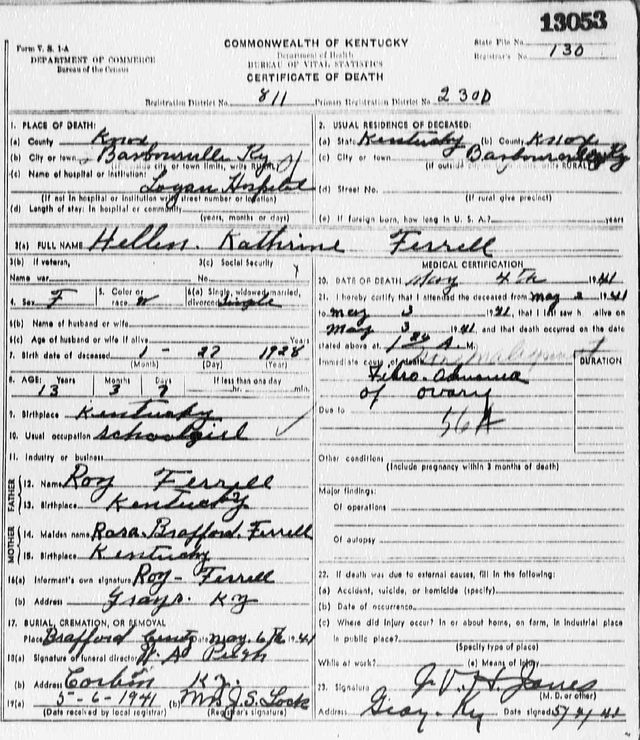 13053
Form V. S. 1-A
DEPARTMENT OF COMMERCE
Bureau of the Census
COMMONWEALTH OF KENTUCKY
Department of Health
BUREAU OF VITAL STATISTICS
CERTIFICATE OF DEATH
State File No.
Registrar's No. 130
Registration District No. 811 Primary Registration District No. 230D
1. PLACE OF DEATH:
(a) County Knox
(b) City or town Barbourville Ky
(If outside city or town limits, write RURAL)
(c) Name of hospital or institution:
Logan Hospital
(If not in hospital or institution write street number or location)
(d) Length of stay: In hospital or community
(years, months or days)
2. USUAL RESIDENCE OF DECEASED:
(a) State Kentucky (b) County Knox
(c) City or town Barbourville Ky
(If outside city or town limits, write RURAL)
(d) Street No.
(If rural give precinct)
(e) If foreign born, how long in U. S. A.? years
3(a) FULL NAME Hellen Kathrine Ferrell
3(b) If veteran,
Name war
3(c) Social Security
No.
4. Sex F
5. Color or
race W
6(a) Single, widowed, married,
divorced Single
6(b) Name of husband or wife
6(c) Age of husband or wife if alive Years
7. Birth date of deceased 1 - 27 1928
(Month) (Day) (Year)
8. AGE: Years Months Days If less than one day
13 3 7 hr. min.
9. Birthplace Kentucky
10. Usual occupation schoolgirl
11. Industry or business
FATHER
12. Name Roy Ferrell
13. Birthplace Kentucky
MOTHER
14. Maiden name Rosa Brafford Ferrell
15. Birthplace Kentucky
16(a) Informant's own signature Roy - Ferrell
(b) Address Grays Ky
17. BURIAL, CREMATION, OR REMOVAL
Place Brafford Date May 6th 1941
18(a) Signature of funeral director
(b) Address Corbin Ky.
19(a) 5-6-1941 (b) Mrs J.S. Lock
(Date received by local registrar) (Registrar's signature)
MEDICAL CERTIFICATION
20. DATE OF DEATH May 4th 1941
21. I hereby certify that I attended the deceased from May 2 1941
to May 3 1941, that I last saw h alive on
May 3 1941, and that death occurred on the date
stated above at A M.
Immediate cause of death
DURATION
of ovary
Due to
56A
Other conditions
(Include pregnancy within 3 months of death)
Major findings:
Of operations
Of autopsy
22. If death was due to external causes, fill in the following:
(a) Accident, suicide, or homicide (specify)
(b) Date of occurrence
(c) Where did injury occur? In or about home, on farm, in industrial place
in public place?
(Specify type of place)
While at work? (e) Means of injury
23. Signature Jones
(M. D. or other)
Address Gray, Ky Date signed 5/4/41